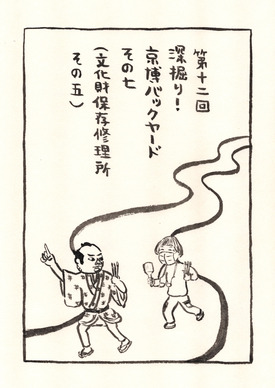 第十二回
深掘り！
京博バックヤード
その七
（文化財保存修理所
その五）